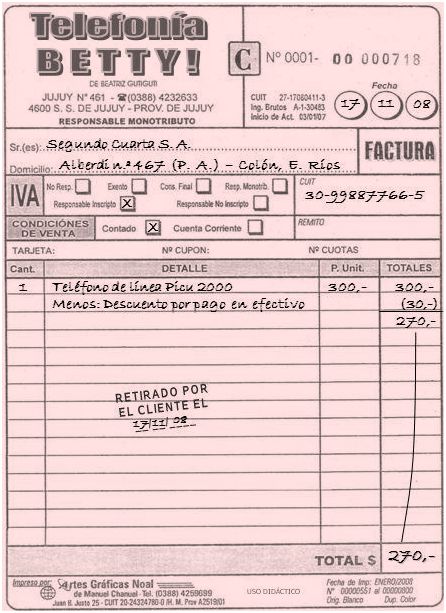 Telefonía
BETTY!
DE BEATRIZ GUTIGUTI
JUJUY Nº 461 - ☎(0388) 4232633
4600 S. S. DE JUJUY - PROV. DE JUJUY
RESPONSABLE MONOTRIBUTO
C
Nº 0001- 00 000718
CUIT 27-17060411-3
Ing. Brutos A-1-30483
Inicio de Act. 03/01/07
Fecha
17 11 08
Sr.(es): Segundo Cuarta S. A.
Domicilio: Alberdi n.º 467 (P. A.) – Colón, E. Ríos
FACTURA
IVA
No Resp. Exento Cons. Final Resp. Monotrib.
Responsable Inscripto X Responsable No Inscripto
CUIT
30-99887766-5
CONDICIÓNES DE VENTA
Contado X Cuenta Corriente
REMITO
TARJETA: Nº CUPON: Nº CUOTAS
Cant. DETALLE P. Unit. TOTALES
1 Teléfono de línea Picu 2000 300,- 300,-
Menos: Descuento por pago en efectivo (30,-)
270,-
RETIRADO POR
EL CLIENTE EL
17/11/08
TOTAL $ 270,-
Impreso por: Artes Gráficas Noal
de Manuel Chanual - Tel. (0388) 4259699
Juan B. Justo 25 - CUIT 20-24324780-0 /H. M. Prov A2519/01
USO DIDÁCTICO
Fecha de Imp: ENERO/2008
Nº 00000551 al 00000800
Orig. Blanco Dup. Color